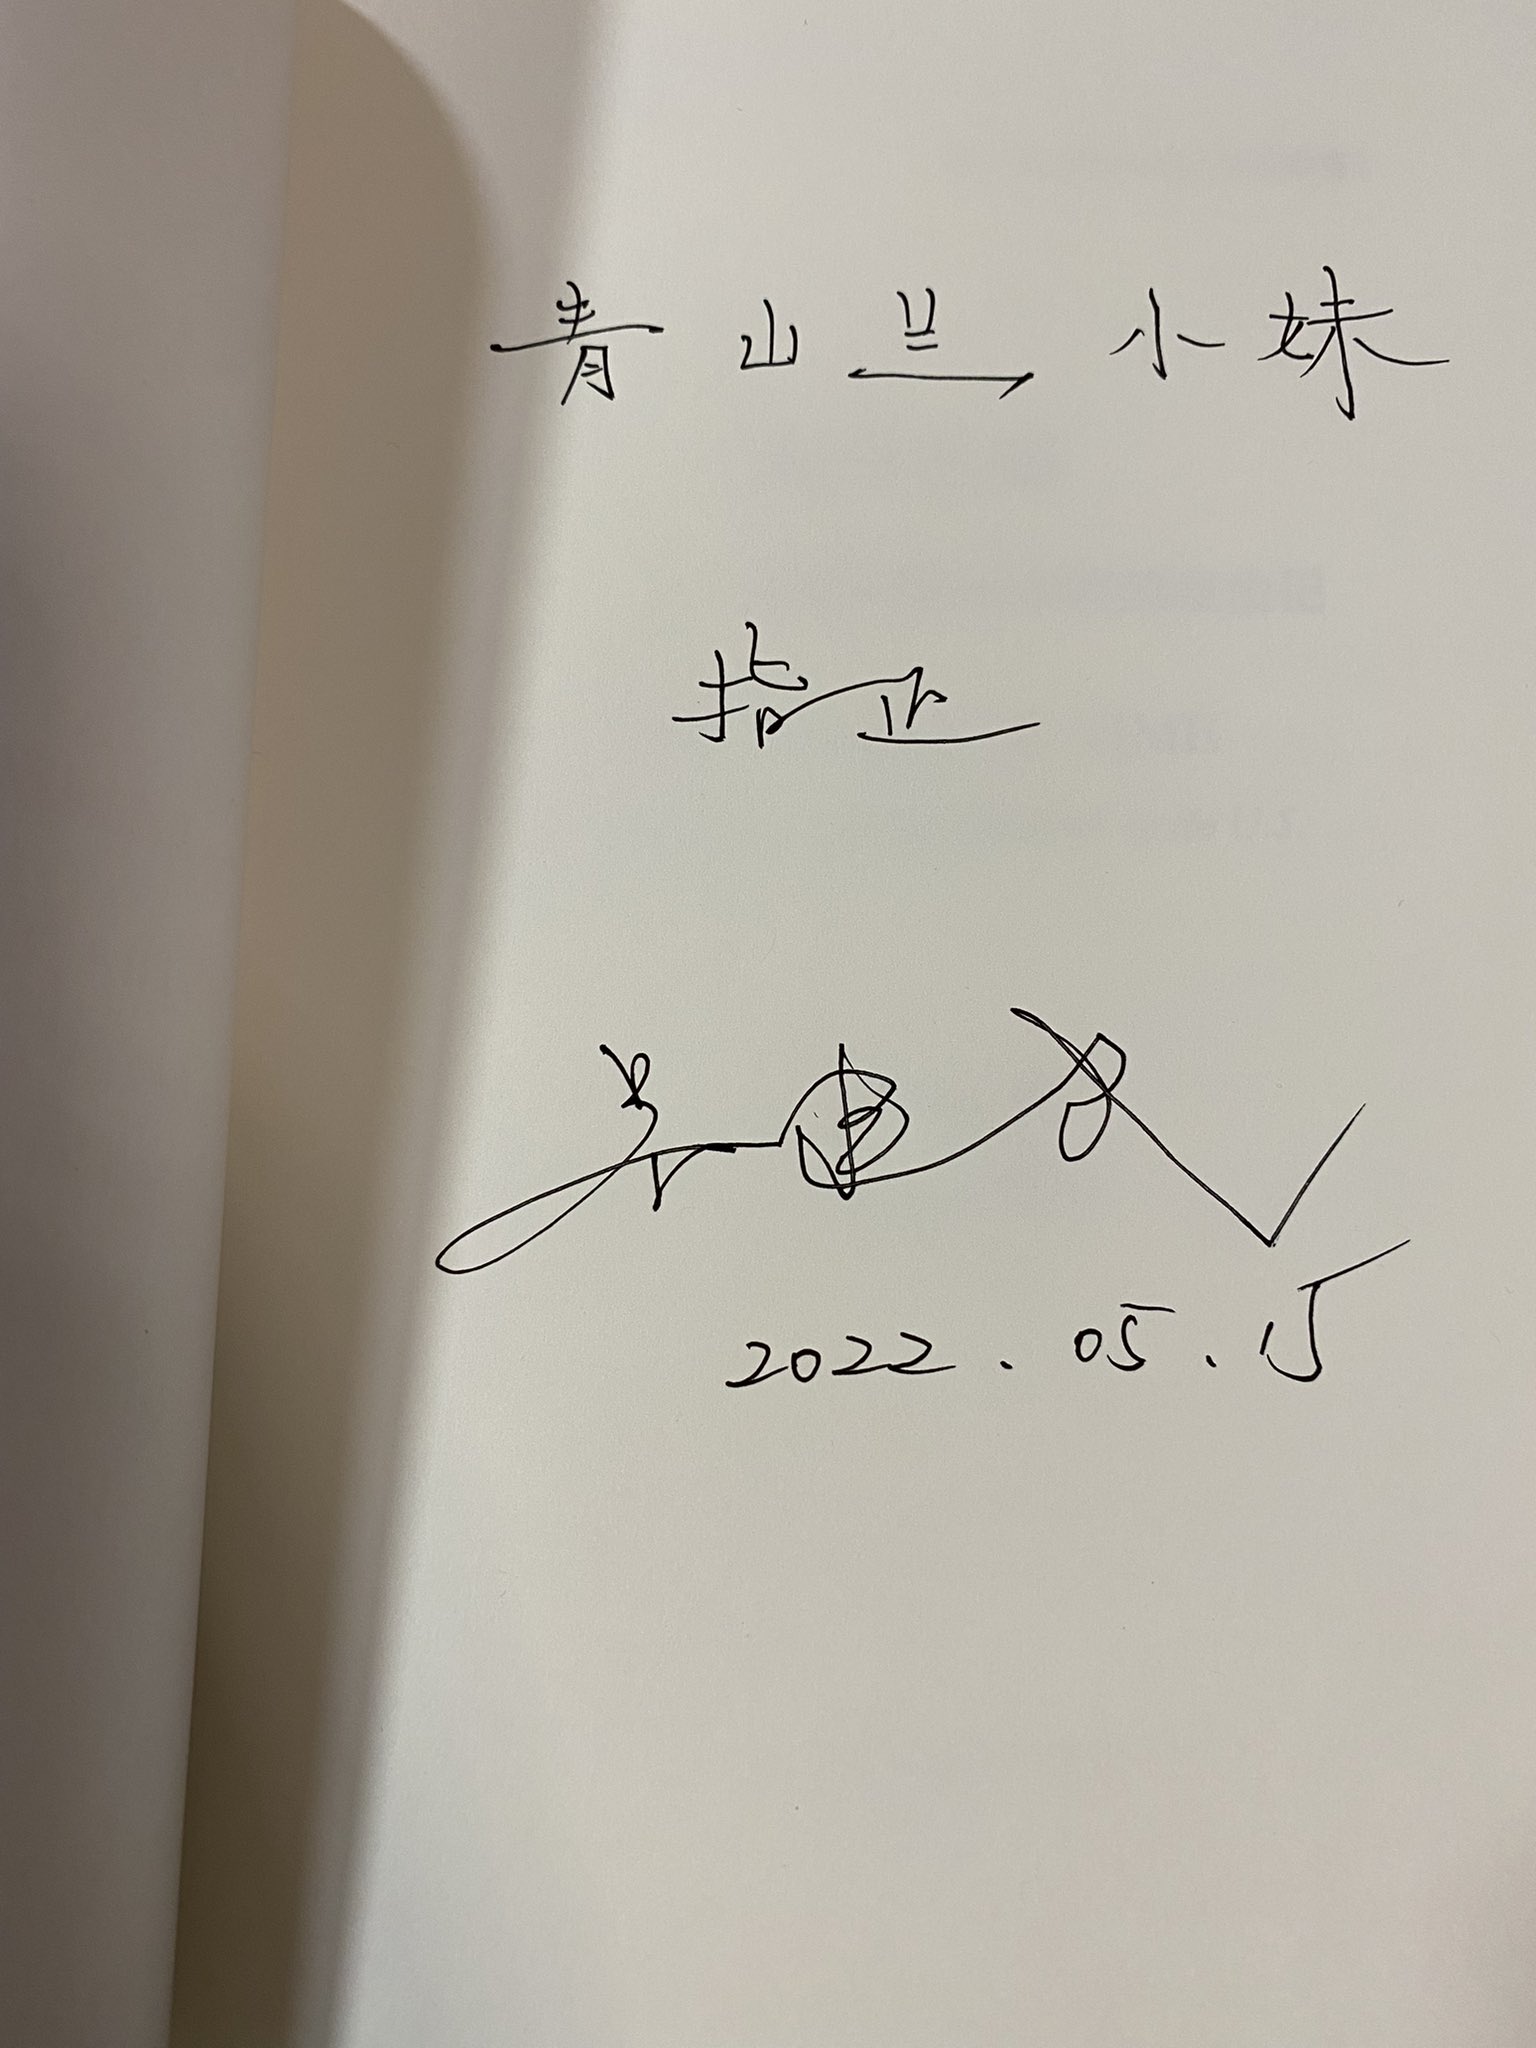 青山兰小妹
指正
2022.05.15